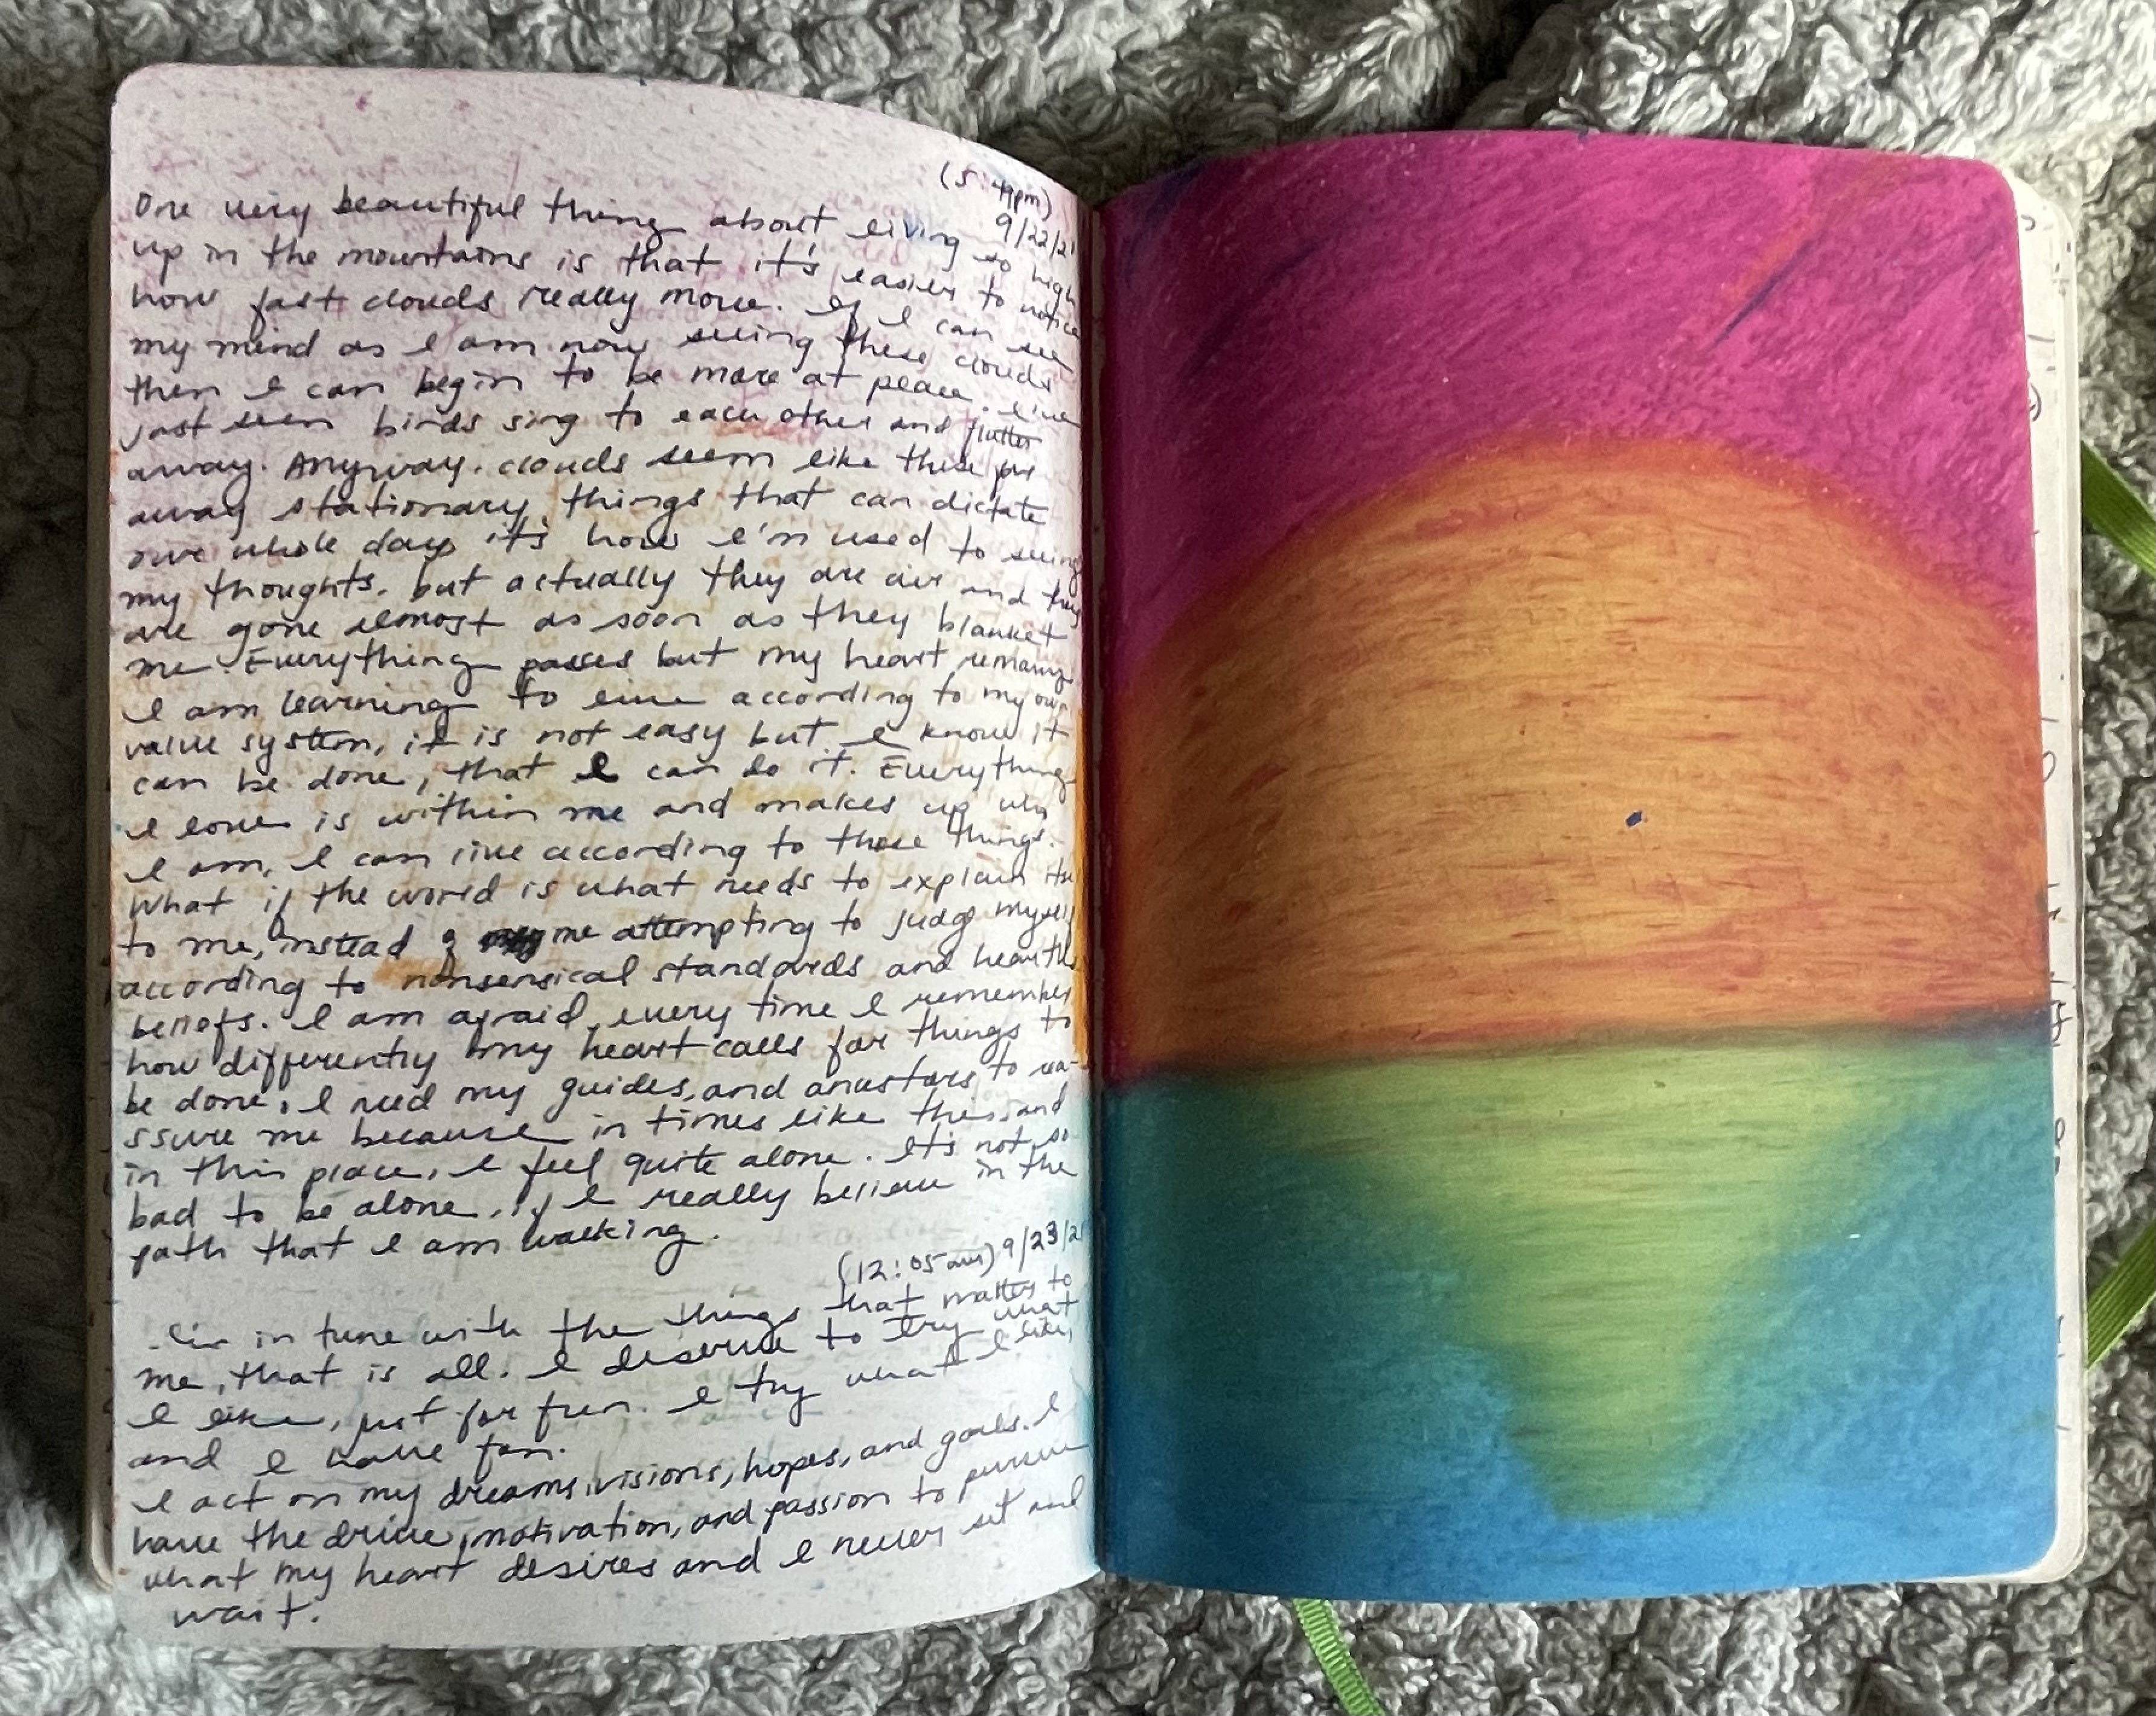 (5:49pm)
9/22/21
One very beautiful thing about living so high
up in the mountains is that it's easier to notice
how fast clouds really move. If I can see
my mind as I am now seeing these clouds
then I can begin to be more at peace. I've
just seen birds sing to each other and flutter
away. Anyway. clouds seem like these far
away stationary things that can dictate
our whole day it's how I'm used to seeing
my thoughts. but actually they are air and they
are gone almost as soon as they blanket
me. Everything passes but my heart remains
I am learning to live according to my own
value system, it is not easy but I know it
can be done, that I can do it. Everything
I love is within me and makes up who
I am, I can live according to those things.
What if the world is what needs to explain itself
to me, instead of me attempting to judge myself
according to nonsensical standards and hearths
beliefs. I am afraid, every time I remember
how differently my heart calls for things to
be done. I need my guides, and ancestors to rea-
ssure me because in times like this and
in this place, I feel quite alone. It's not so
bad to be alone, if I really believe in the
path that I am walking.
(12:05am) 9/23/21
I'm in tune with the things that matter to
me, that is all. I deserve to try what
I like, just for fun. I try what I like,
and I have fun.
I act on my dreams, visions, hopes, and goals. I
have the drive, motivation, and passion to pursue
what my heart desires and I never sit and
wait.